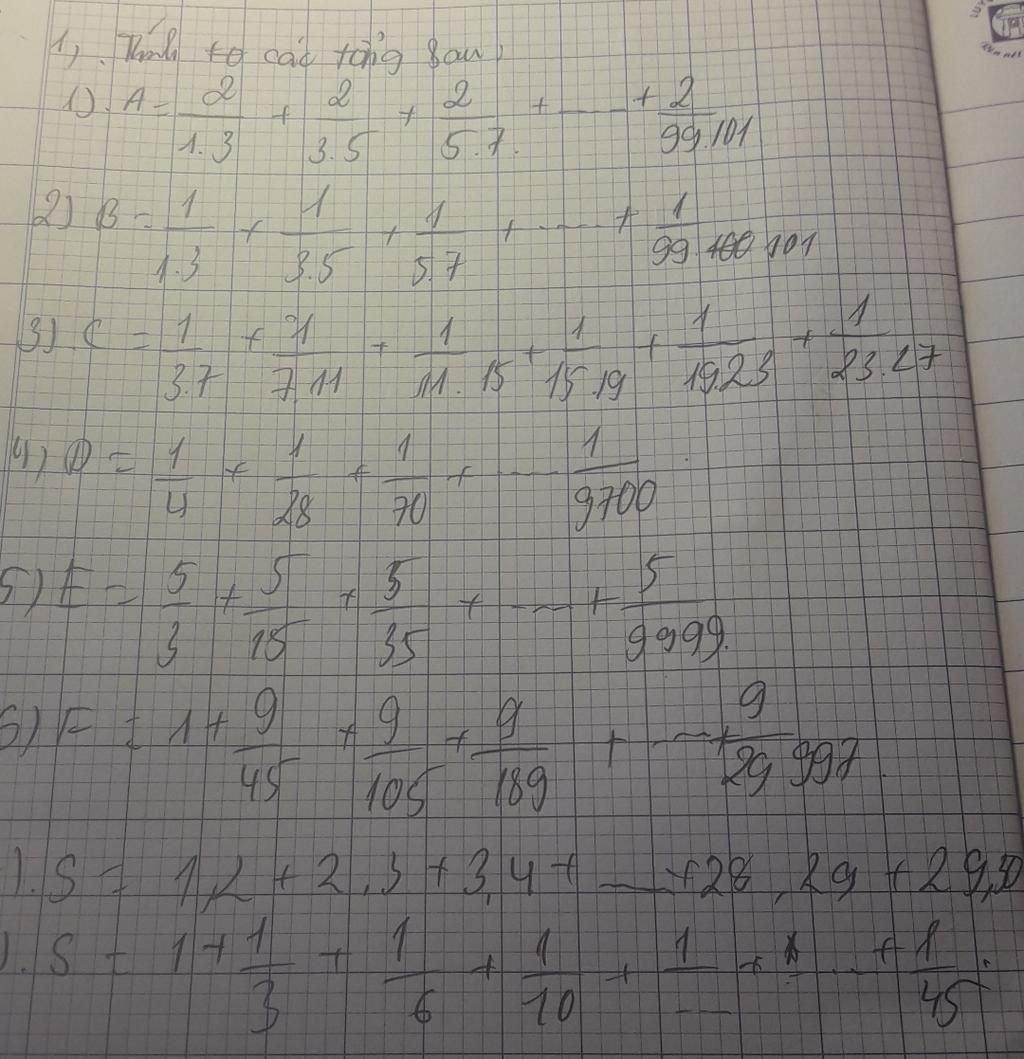 1, Tính to các tổng sau,
1). A = 2/1.3 + 2/3.5 + 2/5.7. + ---- + 2/99.101
2) B = 1/1.3 + 1/3.5 + 1/5.7 + ---- + 1/99.100 101
3) C = 1/3.7 + 1/7.11 + 1/11.15 + 1/15.19 + 1/19.23 + 1/23.27
4) D = 1/4 + 1/28 + 1/70 + --- 1/9700
5) E = 5/3 + 5/15 + 5/35 + ---- + 5/9999.
6) F = 1 + 9/45 + 9/105 + 9/189 + ---- + 9/29 997.
). S = 1.2 + 2.3 + 3.4 + ---- + 28.29 + 29.30
). S = 1 + 1/3 + 1/6 + 1/10 + 1/--- + --- + 1/45.